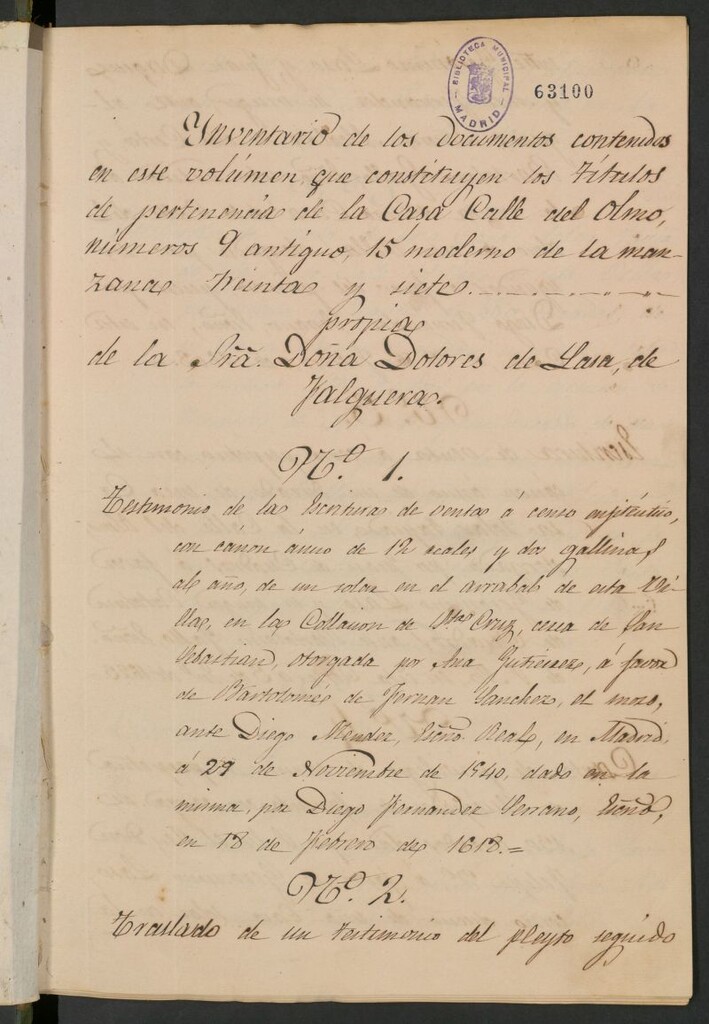 BIBLIOTECA MUNICIPAL
MADRID
63100
Ynventario de los documentos contenidos
en este volúmen que constituyen los títulos
de pertenencia de la Casa Calle del Olmo,
números 9 antiguo, 15 moderno de la man-
zana treinta y siete.
propia
de la Srã. Doña Dolores de Lasa, de
Falguera.
Nº. 1.
Testimonio de la Escritura de venta á censo enfitéutico,
con cánon ánuo de 12 reales y dos gallinas
al año, de un solar en el arrabal de esta Vi-
lla, en la Collacion de Sta. Cruz, cerca de San
Sebastian, otorgada por Ana Gutierrez, á favor
de Bartolomé de Fernan Sanchez, el mozo,
ante Diego Mendez, Escño. Real, en Madrid,
á 29 de Noviembre de 1540, dado en la
misma, por Diego Fernandez Serrano, Escño,
en 18 de Febrero de 1618.=
Nº. 2.
Traslado de un testimonio del pleyto seguido